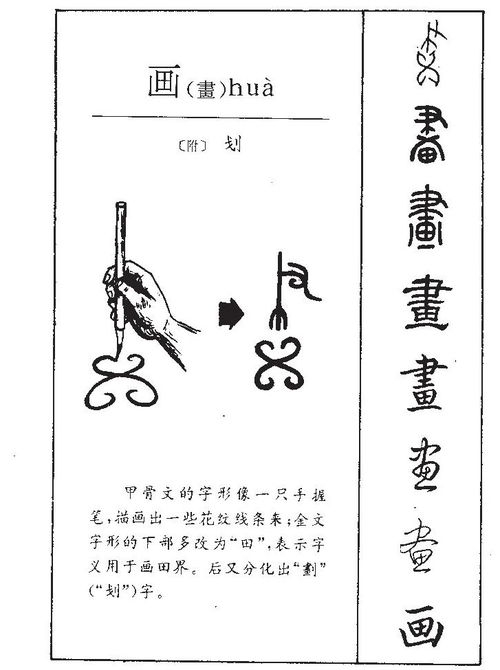 画(畫)huà
〔附〕 划
甲骨文的字形像一只手握
笔,描画出一些花纹线条来;金文
字形的下部多改为“田”,表示字
义用于画田界。后又分化出“劃”
(“划”)字。
畫
畫
畫
畫
画